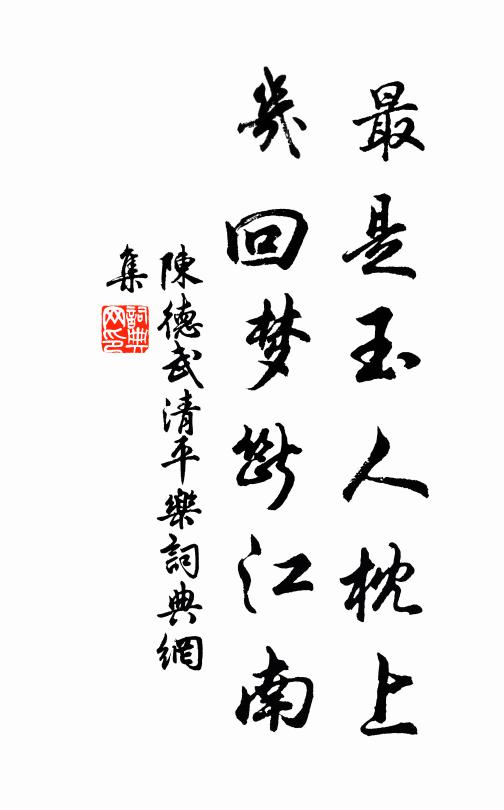 最是玉人枕上
幾回梦斷江南
陳德武清平樂詞典網
集
詞典
网印